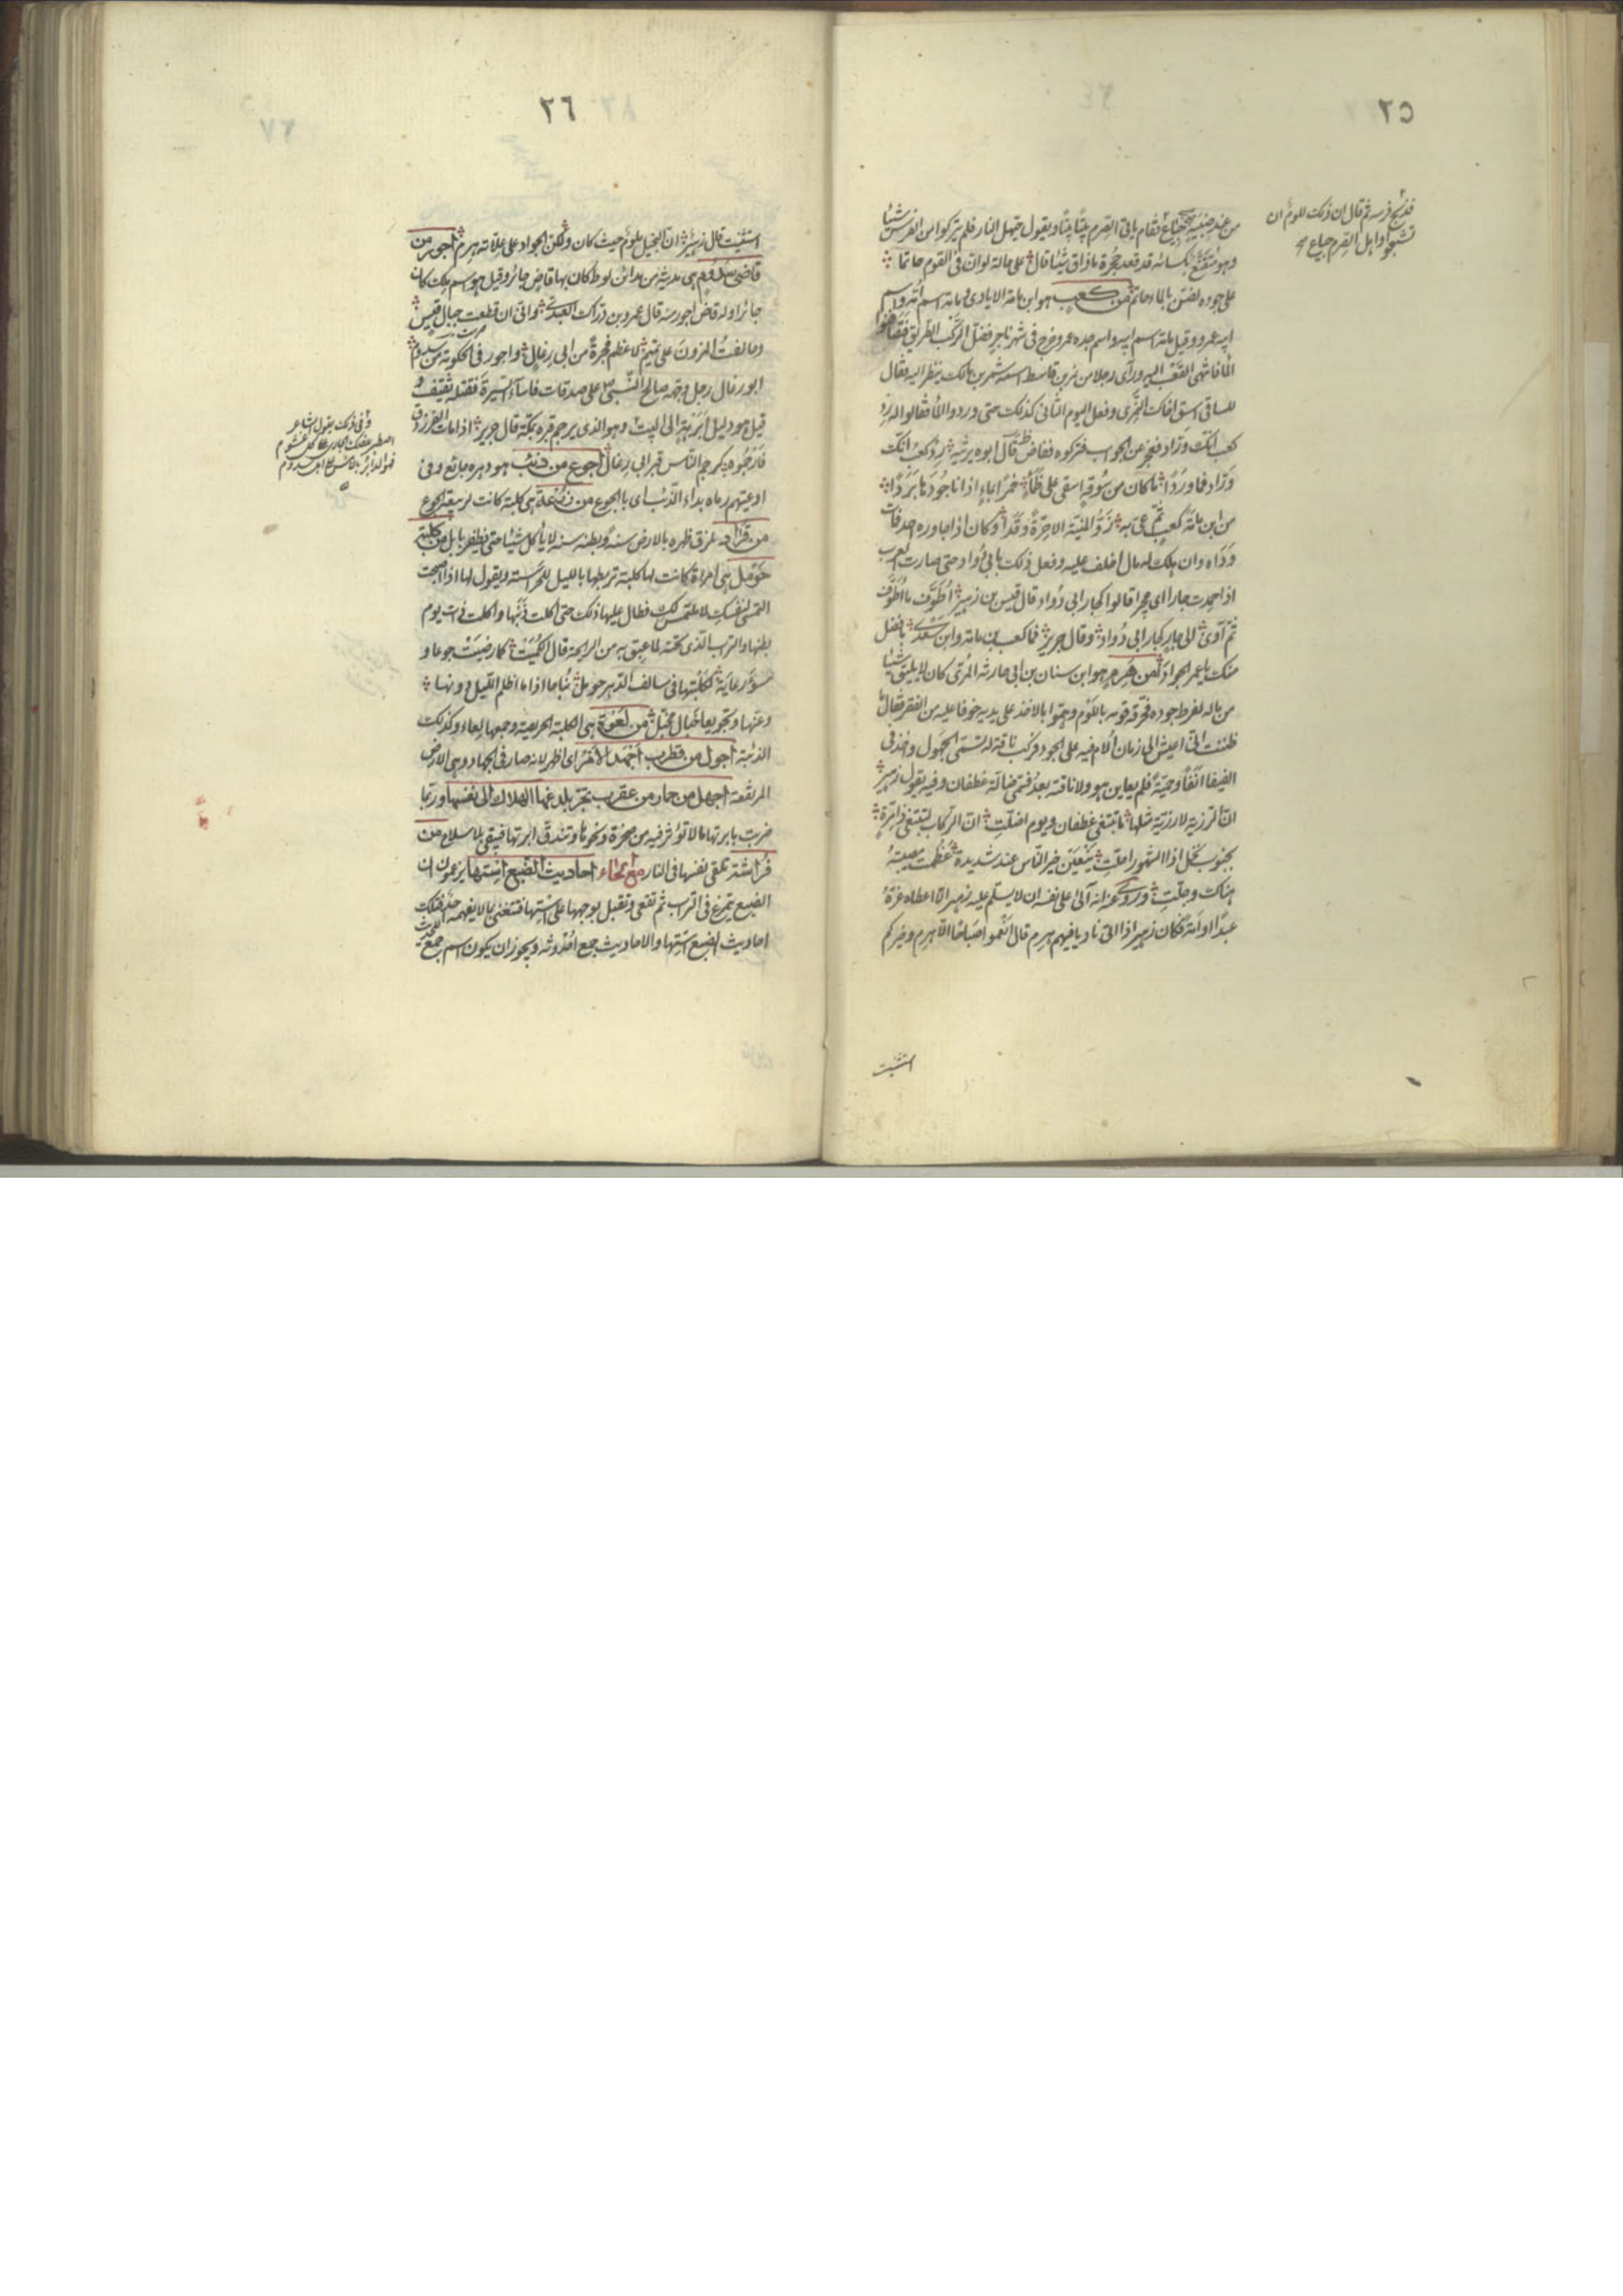 ٢٥
فذبح فرسه ثم قال ان ذلك للوم ان
تشبعوا واهل الصرم جياع صح
من عند صبية جياع فقام ياتى الصرم بيتًا بيتًا ويقول حيهل النار فلم يتركوا من الفرس شيئا
وهو متقنع بكسائه قد قعد حجرة ما ذاق شيئا قال على حالة لو ان فى القوم حاتما
على جوده لضن بالماء حاتم من كعب هو ابن مامة الايادى و مامة اسم امه واسم
ابيه عمرو وقيل مامة اسم ابيه واسم جده عمرو خرج فى شهر ناجر فضل الركب الطريق فتصافنوا
الماء فانتهى القعب اليه ورأى رجلا من نمر بن قاسط اسمه شمر بن مالك ينظر اليه فقال
للساقى اسق اخاك النمرى وفعل اليوم الثانى كذلك حتى وردوا الماء فقالوا له رد
كعب انك وراد فعجز عن الجواب فتركوه ففاض ظمأ قال ابوه يرثيه رد كعب انك
وراد فما وردا ما كان من سوقة اسقى على ظمأ خمرا بماء اذا ناجودها بردا
من ابن مامة كعب ثم عى به زو المنية الا حرة وقدا وكان اذا جاوره احد فمات
وداه وان هلك له مال اخلف عليه وفعل ذلك بابى دواد حتى صارت العرب
اذا حمدت جارا اى مجيرا قالوا كجار ابى دواد قال قيس بن زهير اطوف ما اطوف
ثم آوى الى جار كجار ابى دواد وقال جرير فما كعب بن مامة وابن سعدى بافضل
منك يا عمر الجوادا من هرم هو ابن سنان بن ابى حارثة المرى كان لا يليق شيئا
من ماله لفرط جوده فحرقه قومه باللوم وهموا بالاخذ على يديه خوفا عليه من الفقر فقال ما
ظننت انى اعيش الى زمان الام فيه على الجود وركب ناقة له تسمى الجهول وخذ فى
الفيفا انفا وحمية فلم يعاين هو ولا ناقته بعد فسمى ضالة غطفان وفيه يقول زهير
ان الرزية لا رزية مثلها ما تبتغى غطفان يوم اضلت ان الركاب لتبتغى ذا مرة
بجنوب نخل اذا الشهور احلت ينعين خير الناس عند شديدة عظمت مصيبته
هناك وجلت وروى عنه انه آلى على نفسه ان لا يسلم عليه زهير الا اعطاه غرة
عبدا او امة فكان زهير اذا اتى ناديا فيهم هرم قال انعموا صباحا الا هرم وخيركم
استثنيت
٢٦
استثنيت قال زهير ان البخيل ملوم حيث كان ولكن الجواد على علاته هرم اجور من
قاضى سدوم هى مدينة من مدائن لوط كان بها قاض جائر وقيل هو اسم ملك كان
جائرا وله قاض اجور منه قال عمرو بن دراك العبدى وانى ان قطعت حبال قيس
وحالفت المزون على تميم لاعظم فجرة من ابى رغال واجور فى الحكومة من سدوم
ابو رغال رجل وجهه صالح النبى على صدقات فاساء السيرة فقتله ثقيف و
قيل هو دليل ابرهة الى البيت وهو الذى يرجم قبره بمكة قال جرير اذا مات الفرزدق
فارجموه كرجم الناس قبر ابى رغال اجوع من ذئب هو دهره جائع وفى
ادعيتهم رماه بداء الذئب اى بالجوع من زرعة هى كلبة كانت لربيعة الجوع
من قراد يلزق ظهره بالارض سنة وبطنه سنة لا يأكل شيئا حتى يظفر بابل من كلبة
حومل هى امرأة كانت لها كلبة تربطها بالليل للحراسة ويقول لها اذا اصبحت
التمسى لنفسك لا ملتمس لك فطال عليها ذلك حتى اكلت ذنبها واكلت ذات يوم
بطنها والترب الذى تحته لما عبق به من الرايحة قال الكميت كما رضيت جوعا و
سوء رعاية لكلبتها فى سالف الدهر حومل نباحا اذا ما اظلم الليل دونها
وغنها وتجويعا خبال مخبل من لعوة هى الكلبة الحريصة وجمعها لعاء وكذلك
الذئبة اجول من قطرب اجهد الاغر اى اظهر لانه صار فى الجهاد وهى الارض
المرتفعة اجهل من حمار من عقرب تجر بلدغها الهلاك الى نفسها وربما
ضربت بابرتها ما لا تؤثر فيه من صخرة ونحوها وتندق ابرتها فتبقى بلا سلاح من
فراشة تلقى نفسها فى النار مع الحاء احاديث الضبع استها يزعمون ان
الضبع يتمرغ فى التراب ثم تقعى وتقبل بوجهها على استها فتغنى بما لا يفهمه احد فتلك
احاديث الضبع استها والاحاديث جمع احدوثة ويجوز ان يكون اسم جمع للحديث
وفى ذلك يقول الشاعر